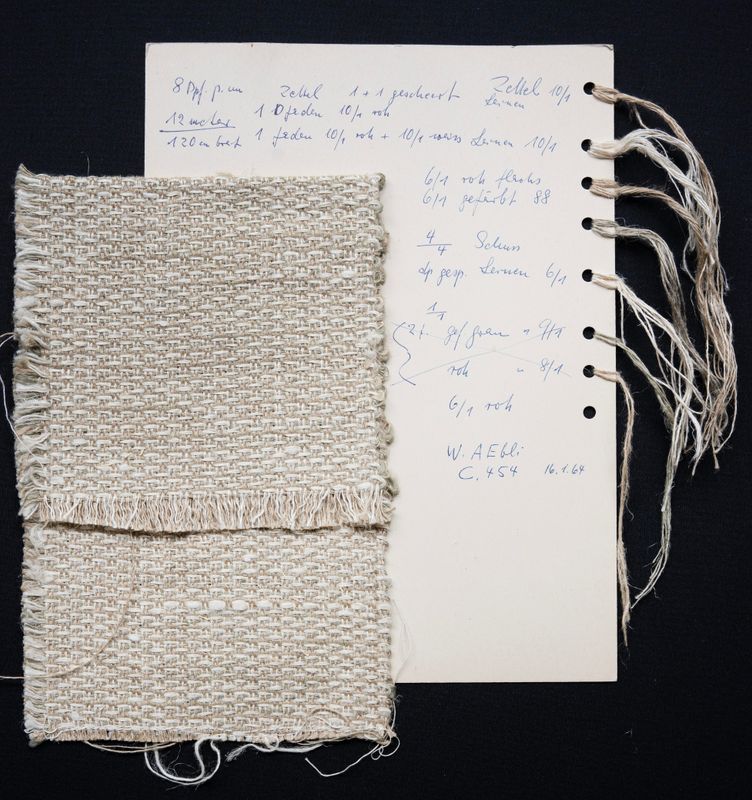 8 Dpf. p. cm Zettel 1 + 1 geschert Zettel 10/1
Leinen
12 meter 1 Faden 10/1 roh
120 cm breit 1 Faden 10/1 roh + 10/1 weiss Leinen 10/1
6/1 roh flachs
6/1 gefärbt 88
4/4 Schuss
gesp. Leinen 6/1
1/1
2 f. gef grau " 9/1
roh " 8/1
6/1 roh
W. AEbli
C. 454 16.1.64